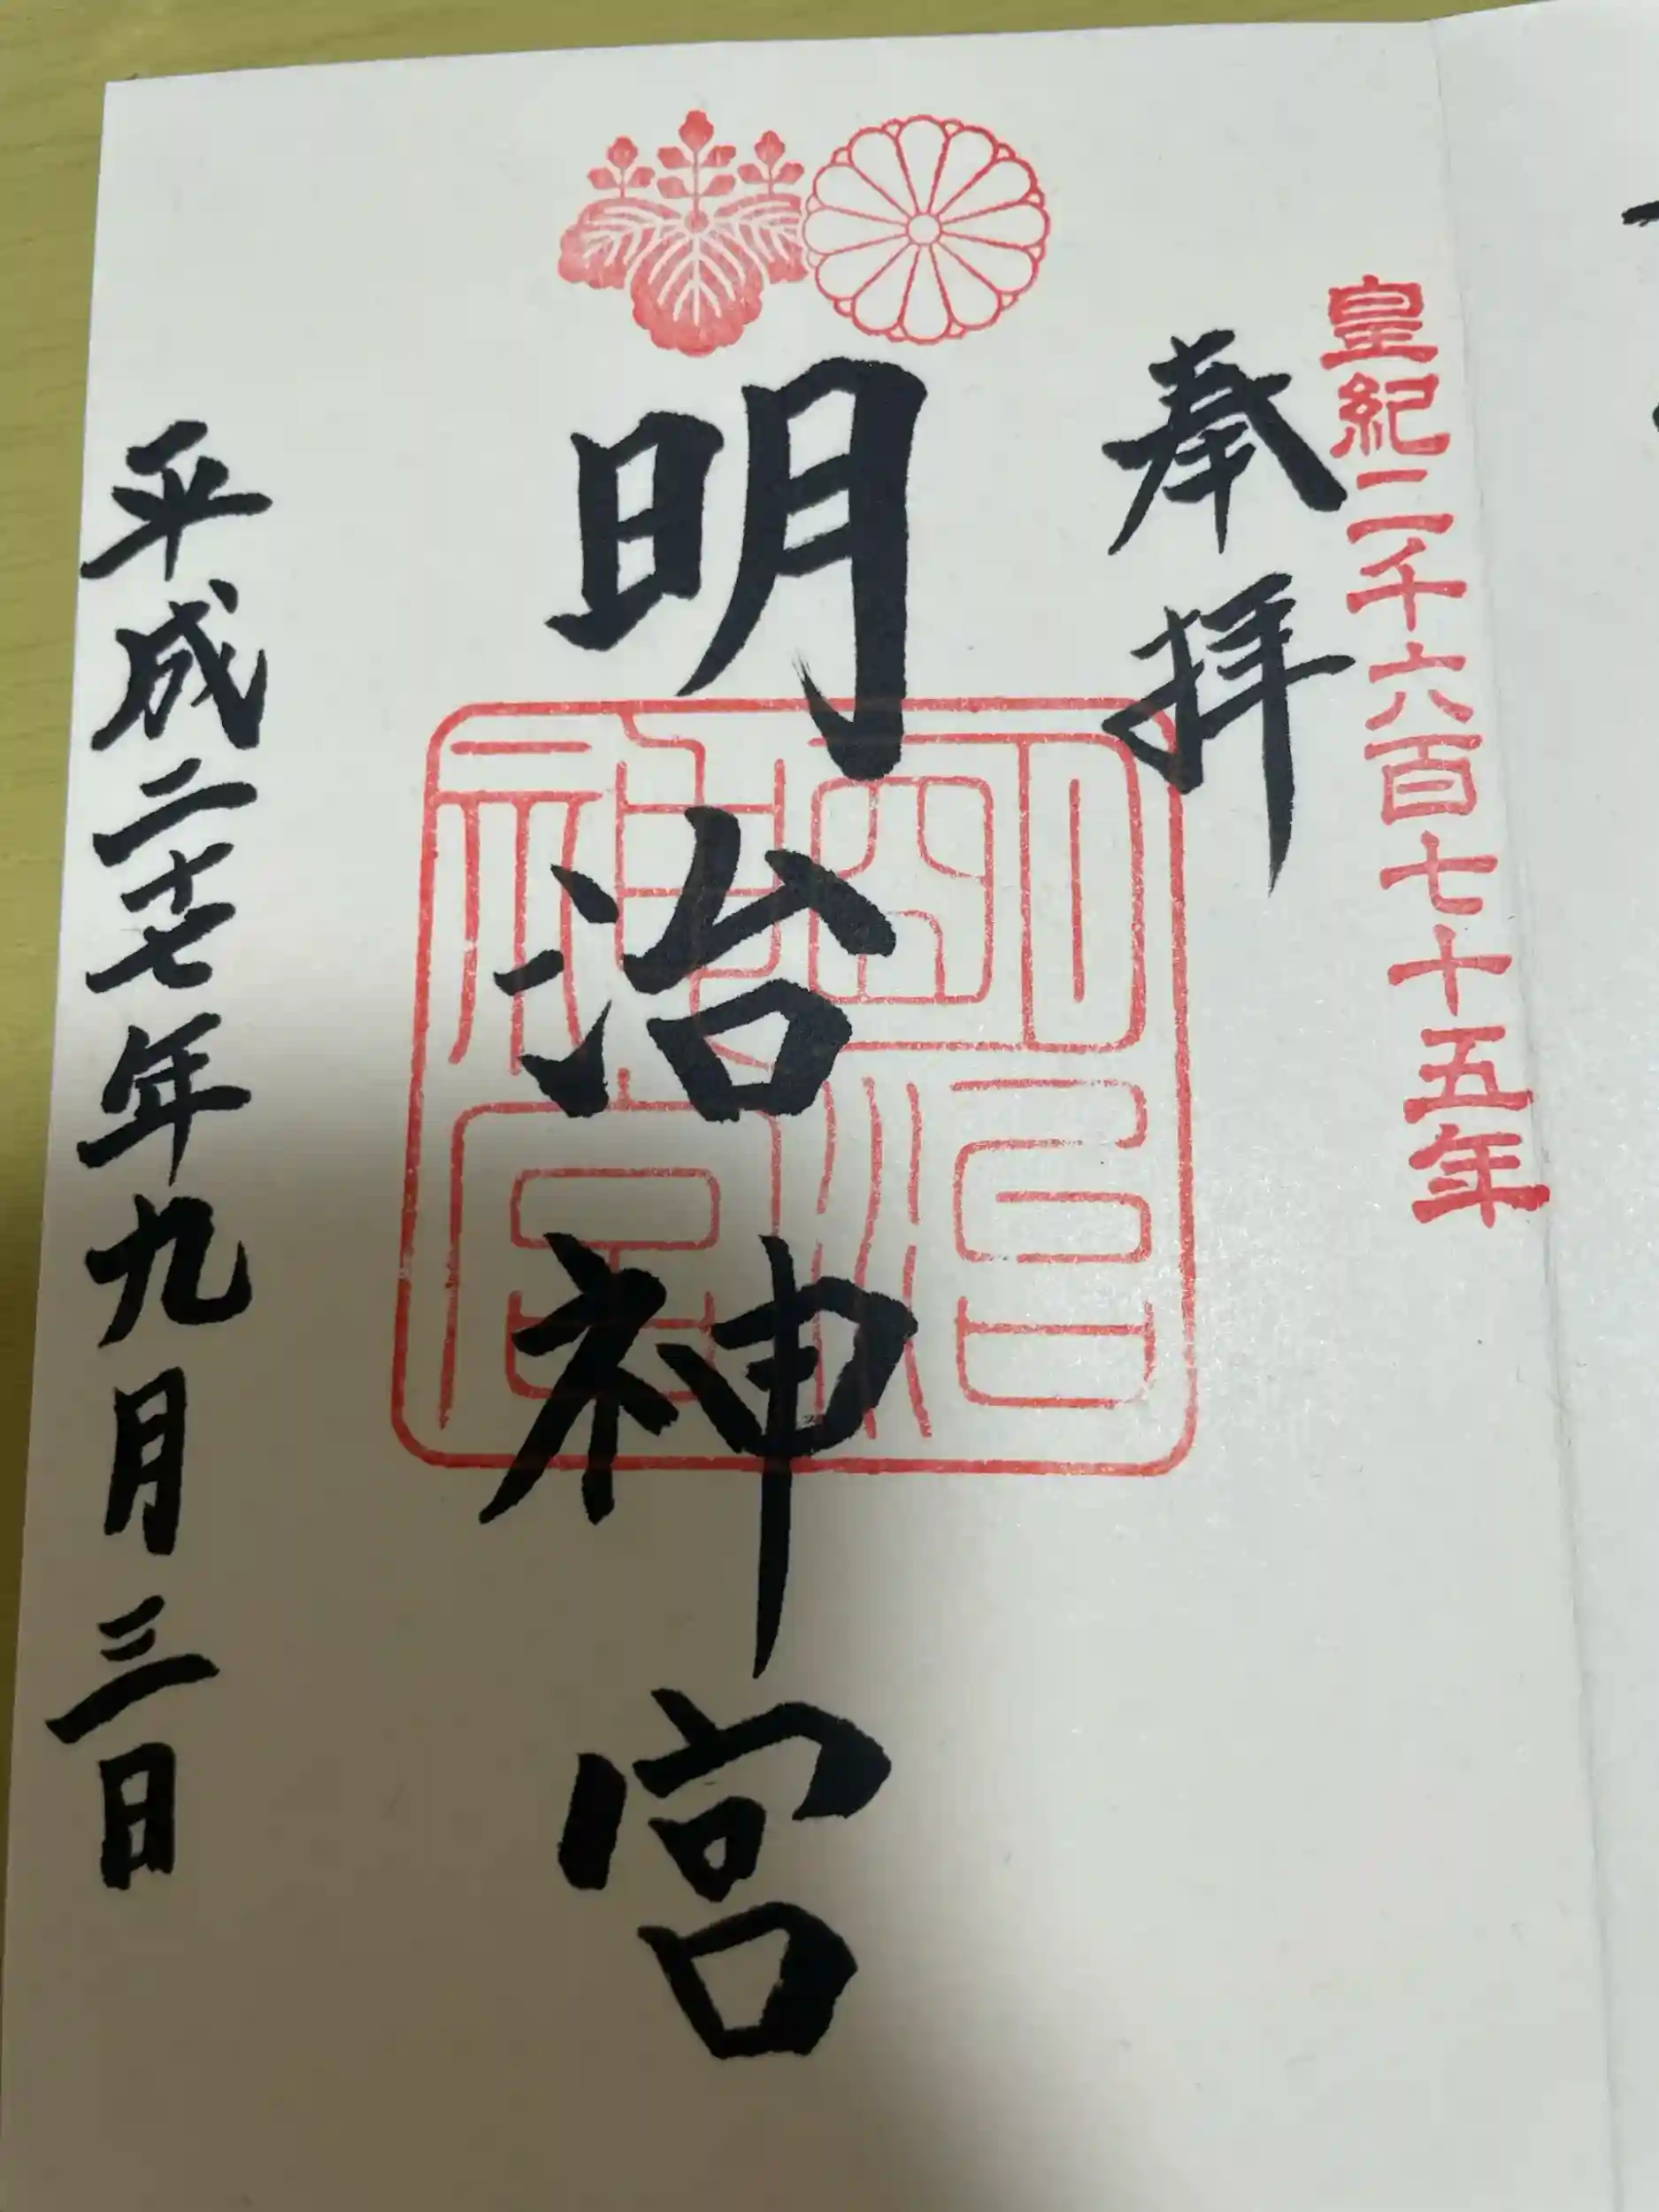 皇紀二千六百七十五年
奉拝
明治神宮
明治神宮
平成二十七年九月三日